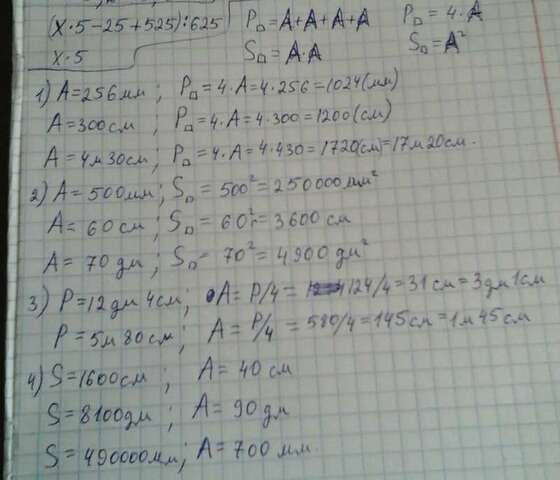 (x·5-25+525):625
P□=A+A+A+A
P□=4·A
x·5
S□=A·A
S□=A²
1) A=256мм; P□=4·A=4·256=1024(мм)
A=300см; P□=4·A=4·300=1200(см)
A=4м30см; P□=4·A=4·430=1720(см)=17м20см.
2) A=500мм; S□=500²=250000мм²
A=60см; S□=60²=3600см
A=70дм; S□=70²=4900дм²
3) P=12дм4см; A=P/4=124/4=31см=3дм1см
P=5м80см; A=P/4=580/4=145см=1м45см
4) S=1600см; A=40см
S=8100дм; A=90дм
S=490000мм; A=700мм.